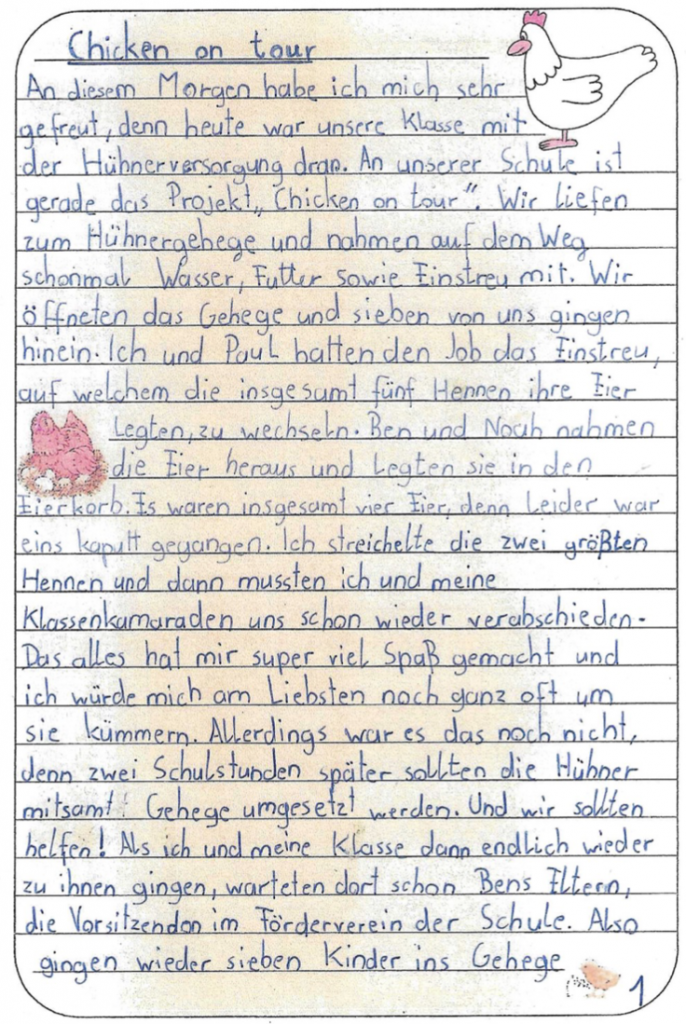 Chicken on tour
An diesem Morgen habe ich mich sehr
gefreut, denn heute war unsere Klasse mit
der Hühnerversorgung dran. An unserer Schule ist
gerade das Projekt „Chicken on tour“. Wir liefen
zum Hühnergehege und nahmen auf dem Weg
schonmal Wasser, Futter sowie Einstreu mit. Wir
öffneten das Gehege und sieben von uns gingen
hinein. Ich und Paul hatten den Job das Einstreu,
auf welchem die insgesamt fünf Hennen ihre Eier
legten, zu wechseln. Ben und Noah nahmen
die Eier heraus und legten sie in den
Eierkorb. Es waren insgesamt vier Eier, denn leider war
eins kaputt gegangen. Ich streichelte die zwei größten
Hennen und dann mussten ich und meine
Klassenkamaraden uns schon wieder verabschieden.
Das alles hat mir super viel Spaß gemacht und
ich würde mich am Liebsten noch ganz oft um
sie kümmern. Allerdings war es das noch nicht,
denn zwei Schulstunden später sollten die Hühner
mitsamt Gehege umgesetzt werden. Und wir sollten
helfen! Als ich und meine Klasse dann endlich wieder
zu ihnen gingen, warteten dort schon Bens Eltern,
die Vorsitzendon im Förderverein der Schule. Also
gingen wieder sieben Kinder ins Gehege
1